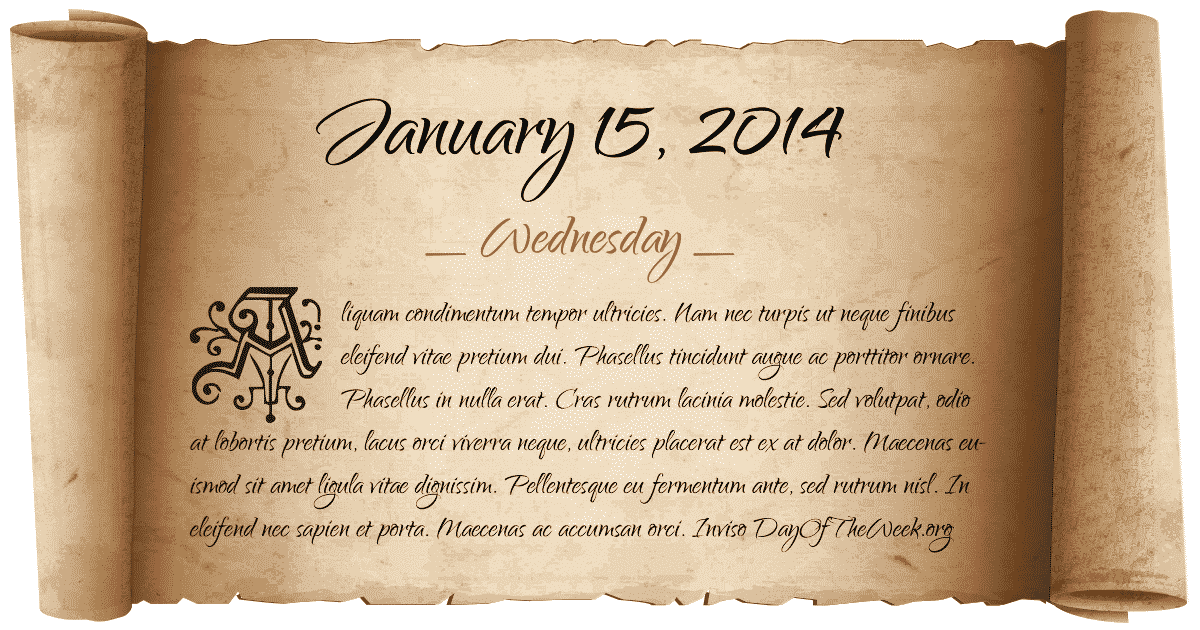 January 15, 2014
Wednesday
Aliquam condimentum tempor ultricies. Nam nec turpis ut neque finibus
eleifend vitae pretium dui. Phasellus tincidunt augue ac porttitor ornare.
Phasellus in nulla erat. Cras rutrum lacinia molestie. Sed volutpat, odio
at lobortis pretium, lacus orci viverra neque, ultricies placerat est ex at dolor. Maecenas eu-
ismod sit amet ligula vitae dignissim. Pellentesque eu fermentum ante, sed rutrum nisl. In
eleifend nec sapien et porta. Maecenas ac accumsan orci. Inviso DayOfTheWeek.org